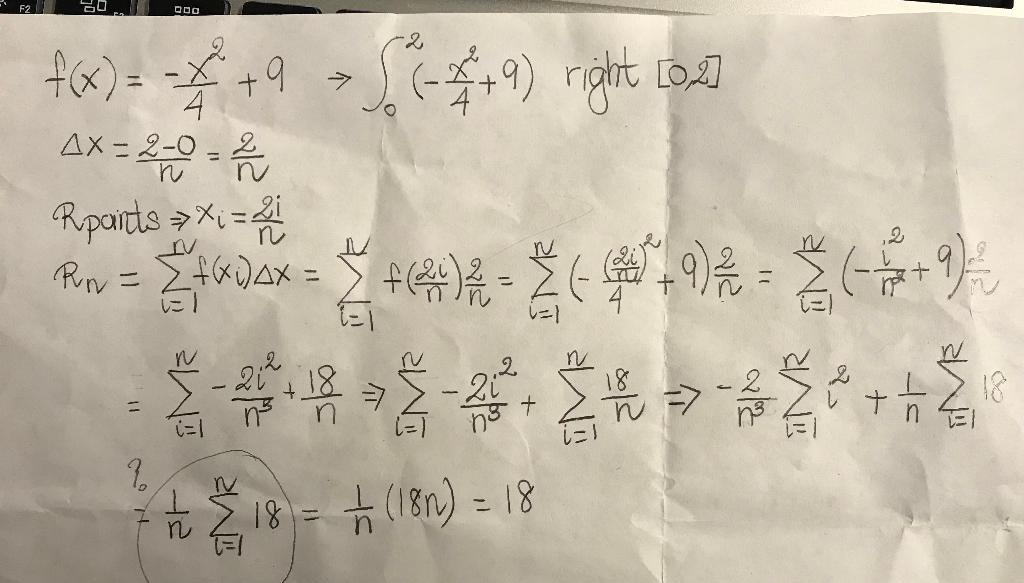 F2
f(x) = -x²/4 + 9 → ∫₀² (-x²/4 + 9) right [0,2]
Δx = 2-0/n = 2/n
Rpoints ⇒ xᵢ = 2i/n
Rn = ∑ᵢ₌₁ⁿ f(xᵢ)Δx = ∑ᵢ₌₁ⁿ f(2i/n) 2/n = ∑ᵢ₌₁ⁿ (-(2i/n)²/4 + 9) 2/n = ∑ᵢ₌₁ⁿ (-i²/n² + 9) 2/n
= ∑ᵢ₌₁ⁿ -2i²/n³ + 18/n ⇒ ∑ᵢ₌₁ⁿ -2i²/n³ + ∑ᵢ₌₁ⁿ 18/n ⇒ -2/n³ ∑ᵢ₌₁ⁿ i² + 1/n ∑ᵢ₌₁ⁿ 18
?
= 1/n ∑ᵢ₌₁ⁿ 18 = 1/n (18n) = 18